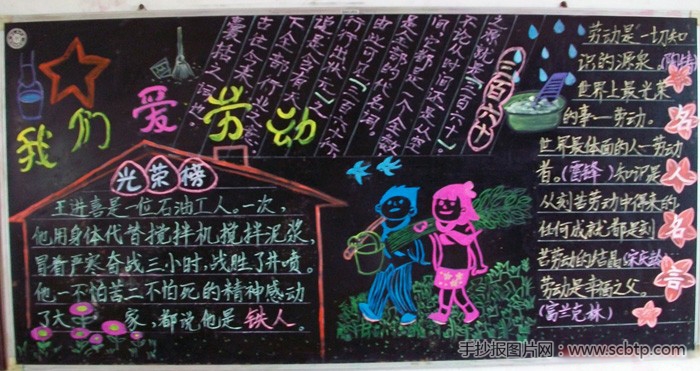 我们爱劳动
光荣榜
王进喜是一位石油工人。一次,
他用身体代替搅拌机搅拌泥浆,
冒着严寒奋战三小时,战胜了井喷。
他一不怕苦二不怕死的精神感动
了大 家,都说他是铁人。
三百六十
“三百六十”
不论从时间还是从空
间,它都是一个全数
是全部的代名词。
由此可 “三百六十行,
行行出状元”之
说是含有天
下全部行业之意
古往今来
劳动是一切知
识的源泉。(陶铸)
世界上最光荣
的事—劳动。
世界最体面的人—劳动
者。(雷锋)知识是
从刻苦劳动中得来的,
任何成就都是刻
苦劳动的结晶(宋庆龄)
劳动是幸福之父。
(富兰克林)
名人名言
手抄报图片网:www.scbtp.com